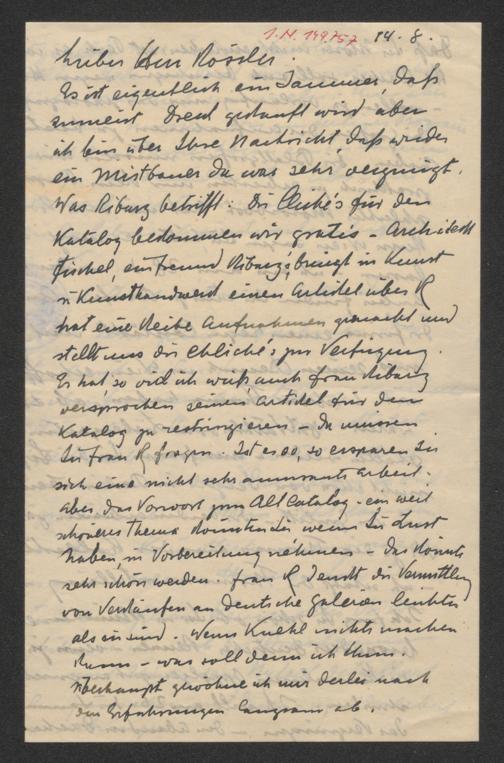 I.N. 149.757 14.8.
Lieber Herr Rössler.
Es ist eigentlich ein Jammer, daß
zumeist Dreck gekauft wird aber
ich bin über Ihre Nachricht daß wieder
ein Mistbauer da war sehr vergnügt.
Was Ribarz betrifft: Die Cliché's für den
Katalog bekommen wir gratis – Architekt
Fischel, ein Freund Ribarz's, bringt in Kunst
u Kunsthandwerk einen Artikel über R
hat eine Reihe Aufnahmen gemacht und
stellt uns die Chliché's zur Verfügung.
Er hat, so viel ich weiß, auch Frau Ribarz
versprochen seinen Artikel für den
Katalog zu restringieren – Da müssen
Sie Frau R fragen. Ist es so, so ersparen Sie
sich eine nicht sehr amusante Arbeit.
Aber das Vorwort zum Alt Catalog – ein weit
schöneres Thema könnten Sie wenn Sie Lust
haben, in Vorbereitung nehmen – Das könnte
sehr schön werden. Frau R denkt die Vermittlung
von Verkäufen an Deutsche Galerien leichter
als sie sind. Wenn Kuehl nichts machen
kann – was soll denn ich thun.
Überhaupt gewöhne ich mir derlei nach
den Erfahrungen langsam ab.